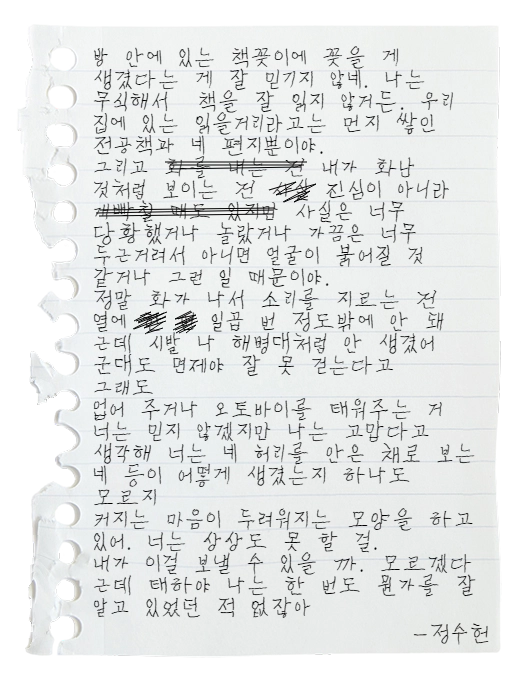 방 안에 있는 책꽂이에 꽂을 게
생겼다는 게 잘 믿기지 않네. 나는
무식해서 책을 잘 읽지 않거든. 우리
집에 있는 읽을거리라고는 먼지 쌓인
전공책과 네 편지뿐이야.
그리고 화를 내는 건 내가 화난
것처럼 보이는 건 진심이 아니라
개빡칠 때도 있지만 사실은 너무
당황했거나 놀랐거나 가끔은 너무
두근거려서 아니면 얼굴이 붉어질 것
같거나 그런 일 때문이야.
정말 화가 나서 소리를 지르는 건
열에 일곱 번 정도밖에 안 돼
근데 시발 나 해병대처럼 안 생겼어
군대도 면제야 잘 못 걷는다고
그래도
업어 주거나 오토바이를 태워주는 거
너는 믿지 않겠지만 나는 고맙다고
생각해 너는 네 허리를 안은 채로 보는
네 등이 어떻게 생겼는지 하나도
모르지
커지는 마음이 두려워지는 모양을 하고
있어. 너는 상상도 못 할 걸.
내가 이걸 보낼 수 있을 까. 모르겠다
근데 태하야 나는 한 번도 뭔가를 잘
알고 있었던 적 없잖아
-정수헌